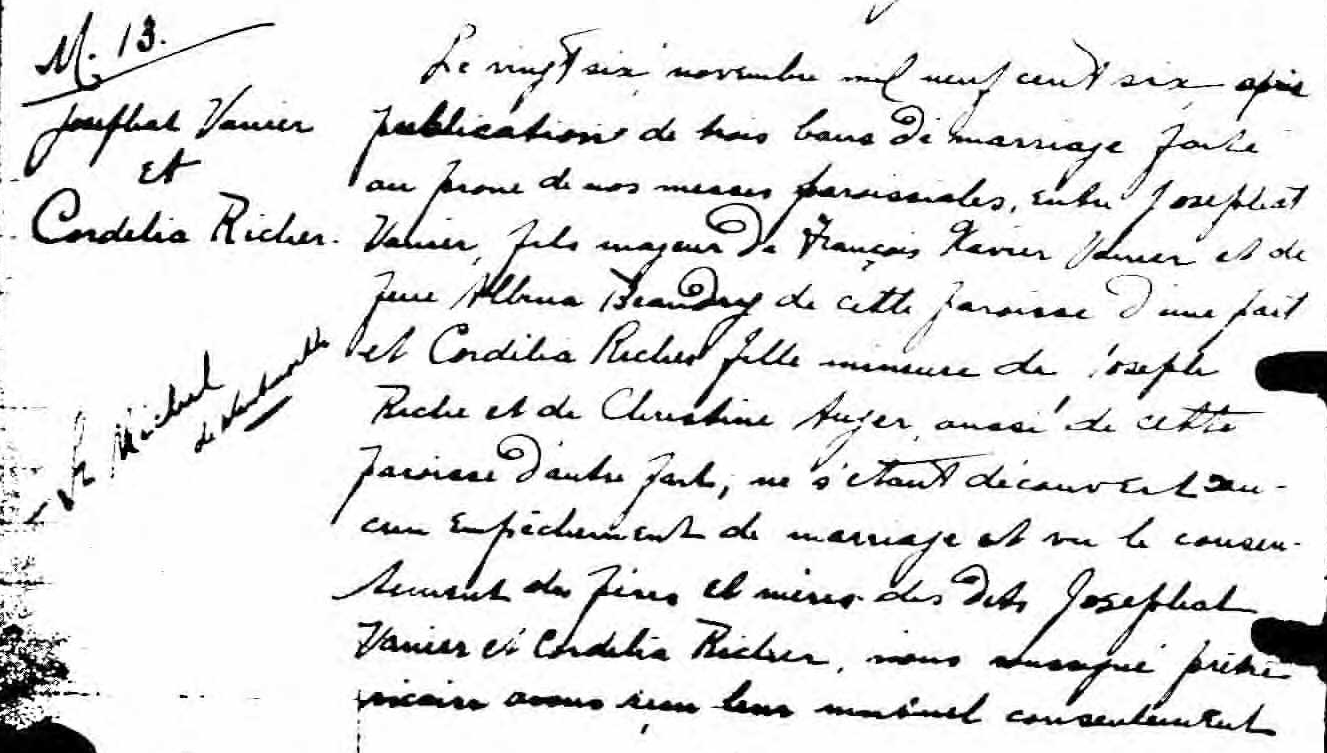 M. 13.
Josephat Vanier
et
Cordelia Richer.
St Michel
de Wentworth
Le vingt six novembre mil neuf cent six après
publication de trois bans de marriage faite
au prone de nos messes paroissiales, entre Josephat
Vanier, fils majeur de François Xavier Vanier et de
feue Albina Beaudry de cette paroisse d'une part
et Cordilia Richer fille mineure de Joseph
Riche et de Christine Auger, aussi de cette
paroisse d'autre part, ne s'étant découvert au-
cun empêchement de marriage et vu le consen-
tement des pères et mères des dits Josephat
Vanier et Cordelia Richer, nous soussigné prêtre
vicaire avons reçu leur mutuel consentement